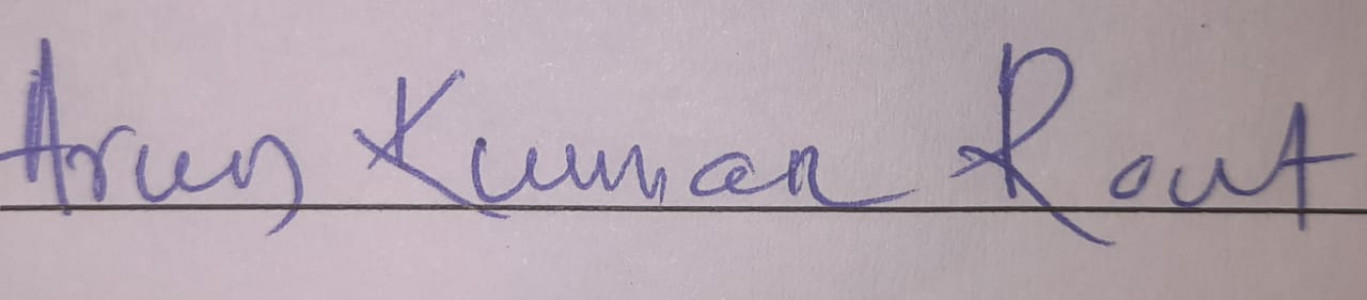 Arun Kumar Rout